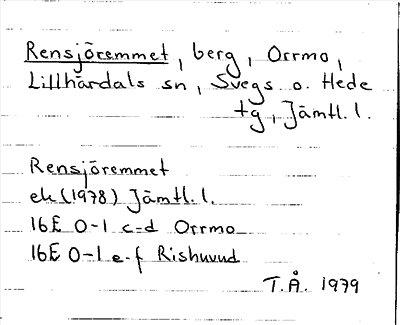 Rensjöremmet, berg, Orrmo,
Lillhärdals sn, Svegs o. Hede
tg, Jämtl. l.
Rensjöremmet
ek (1978) Jämtl. l.
16E 0-1 c-d Orrmo
16E 0-1 e-f Rishuvud
T.Å. 1979